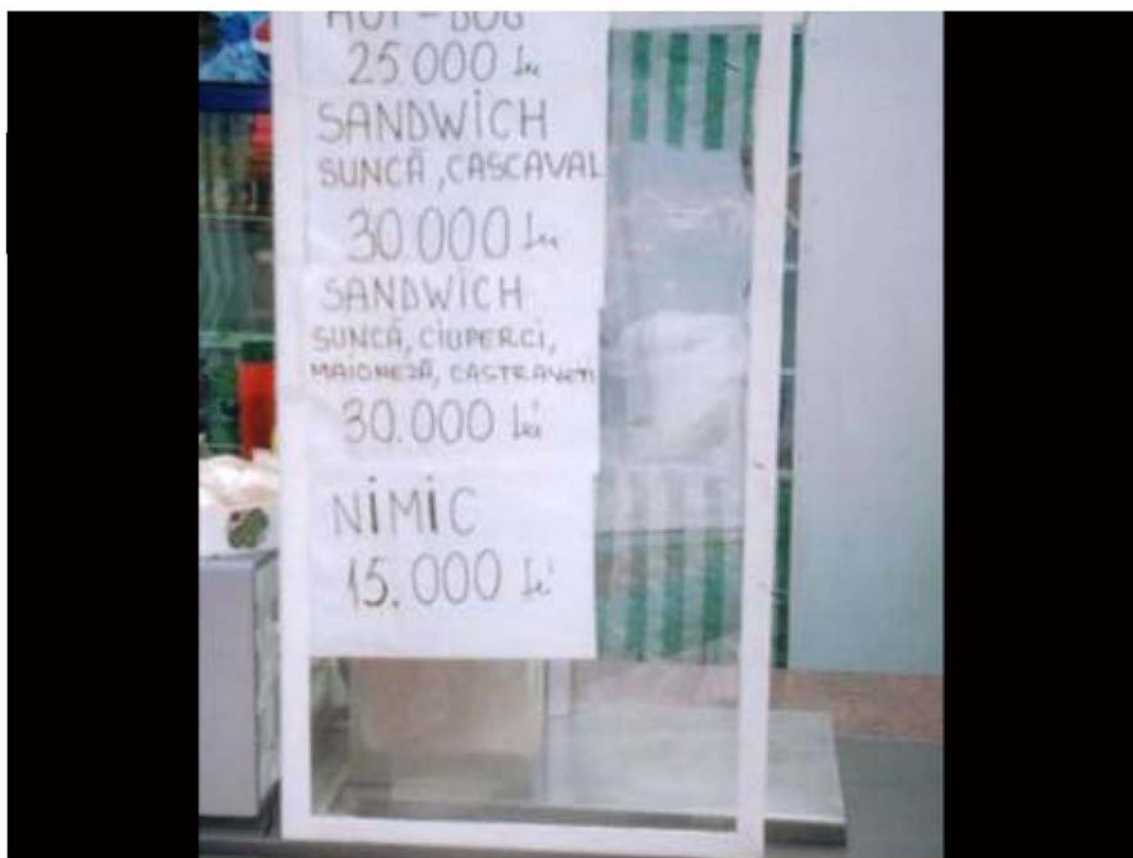 HOT-DOG
25.000 Lei
SANDWİCH
SUNCĂ, CASCAVAL
30.000 Lei
SANDWİCH
SUNCĂ, CİUPERCİ,
MAIONEZĂ, CASTRAVETI
30.000 Lei
NİMİC
15.000 Lei